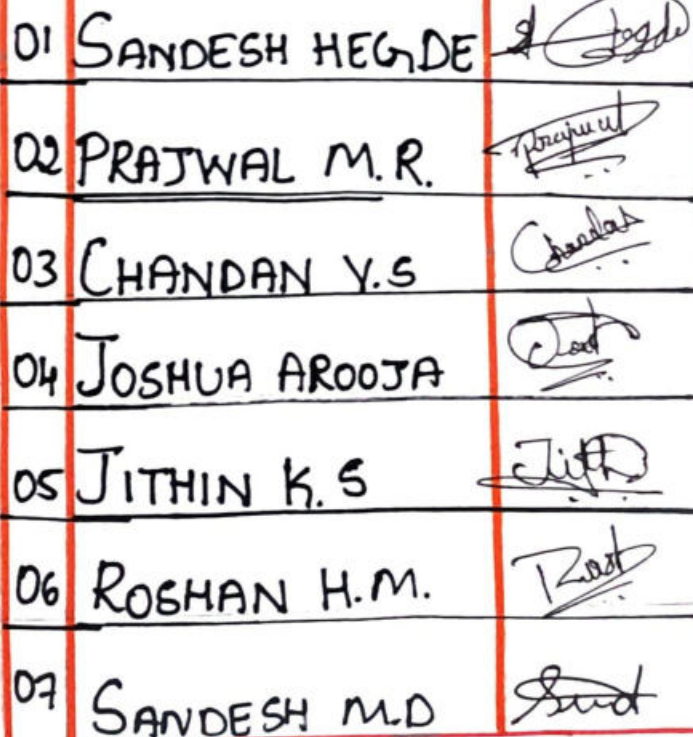 01 SANDESH HEGDE Hegde
02 PRAJWAL M.R. Prajwal
03 CHANDAN Y.S Chandan
04 JOSHUA AROOJA
05 JITHIN K.S Jith
06 ROSHAN H.M.
07 SANDESH M.D